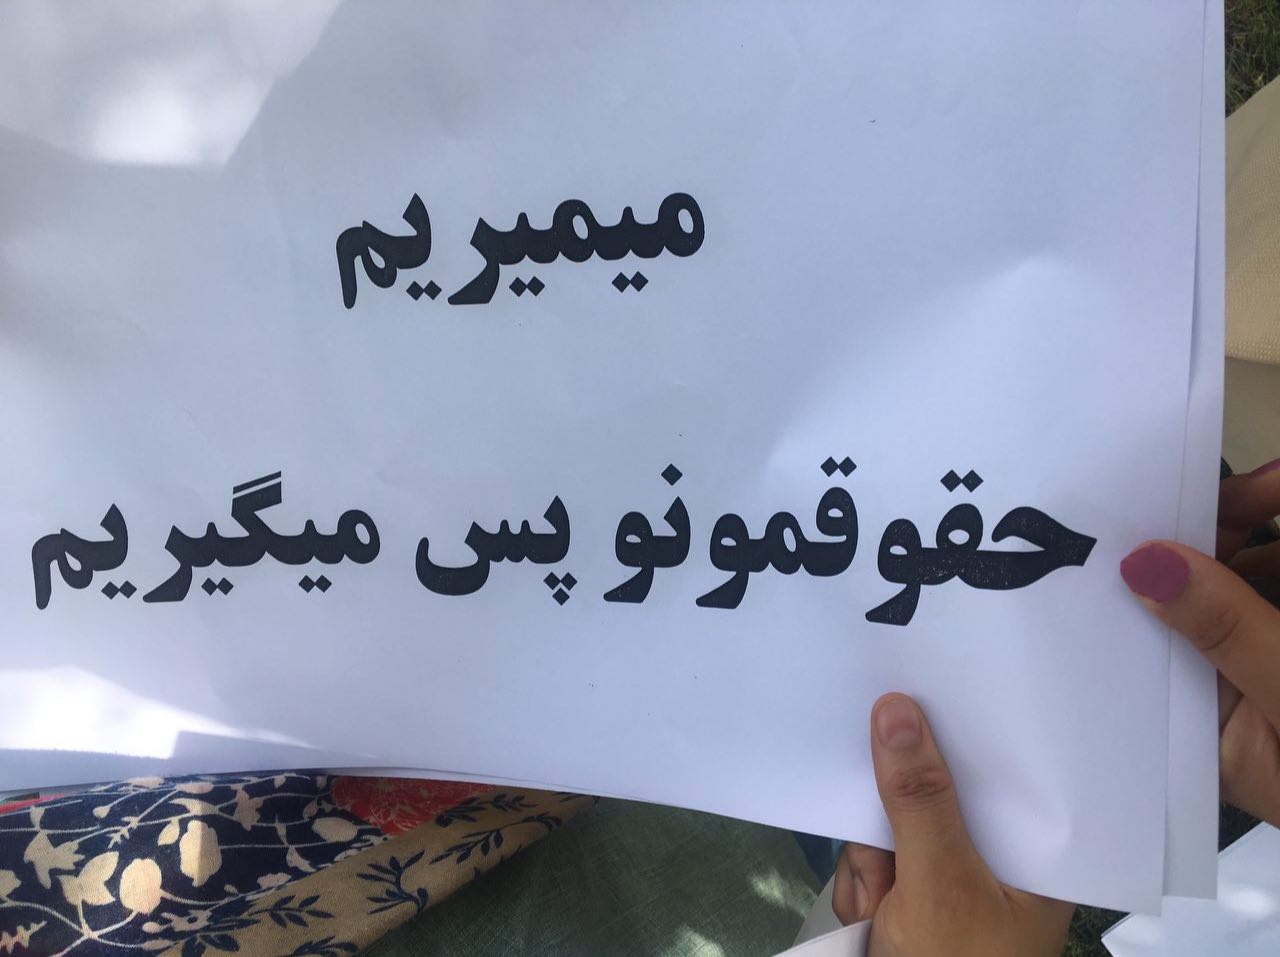 میمیریم
حقوقمونو پس میگیریم